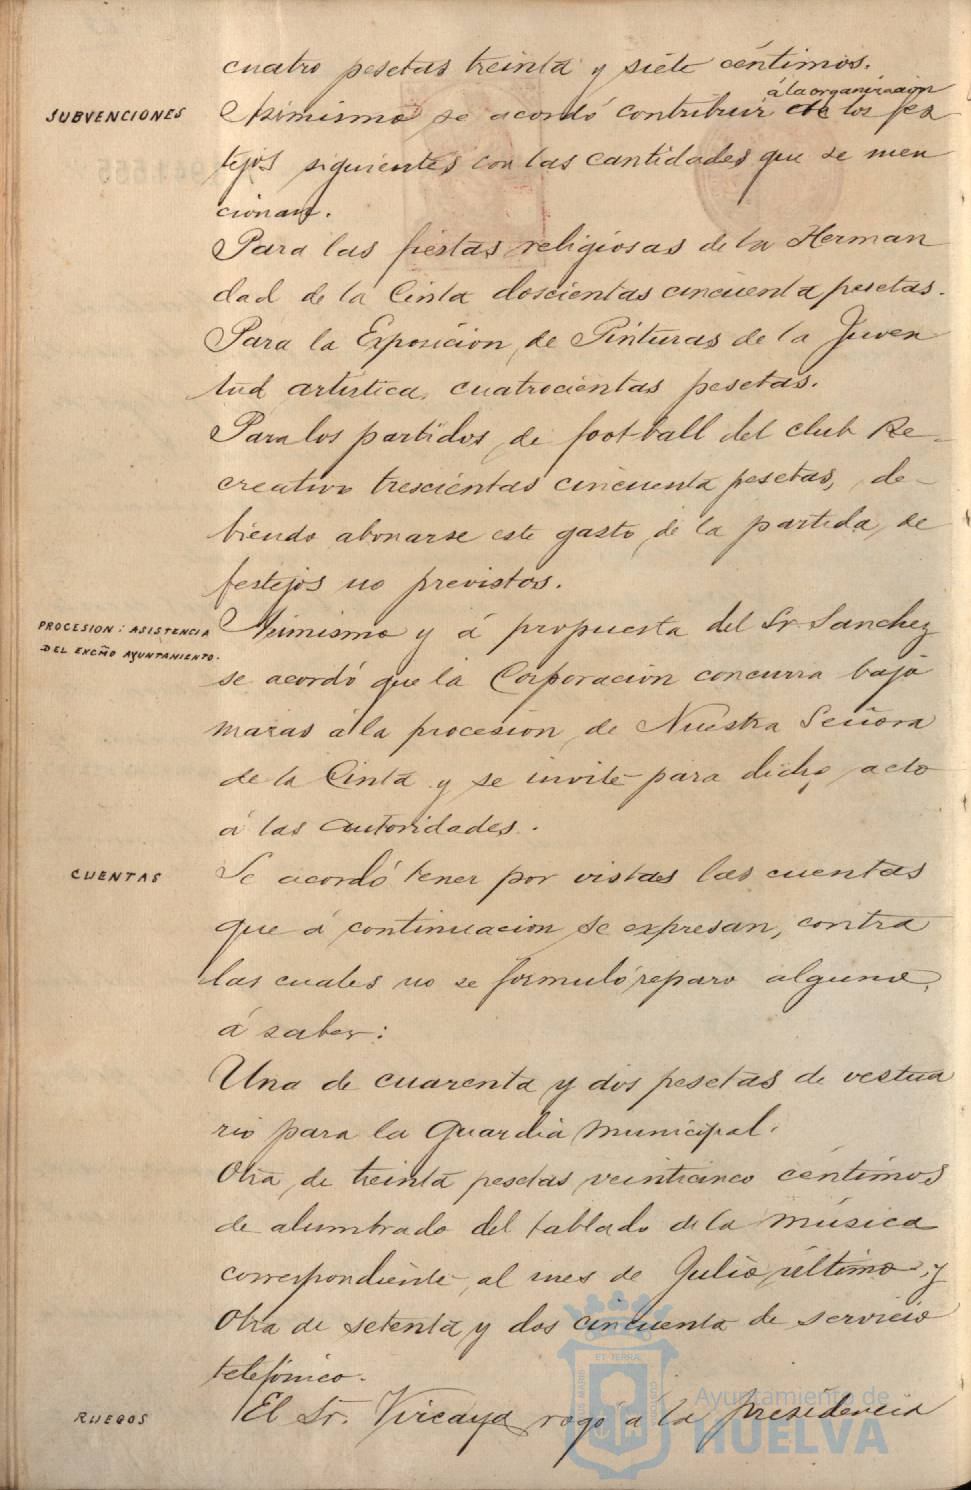 cuatro pesetas treinta y siete céntimos.
á la organización
SUBVENCIONES
Asimismo se acordó contribuir de los fes
tejos siguientes con las cantidades que se men
cionan.
Para las fiestas religiosas de la Herman
dad de la Cinta doscientas cincuenta pesetas.
Para la Exposición de Pinturas de la Juven
tud artística, cuatrocientas pesetas.
Para los partidos de foot-ball del club Re-
creativo trescientas cincuenta pesetas, de-
biendo abonarse este gasto de la partida de
festejos no previstos.
PROCESION: ASISTENCIA
DEL EXCMO AYUNTAMIENTO.
Asimismo y á propuesta del Sr. Sanchez
se acordó que la Corporación concurra bajo
mazas á la procesión de Nuestra Señora
de la Cinta y se invite para dicho acto
á las autoridades.
CUENTAS
Se acordó tener por vistas las cuentas
que á continuacion se expresan, contra
las cuales no se formuló reparo alguno,
á saber:
Una de cuarenta y dos pesetas de vestua
rio para la Guardia Municipal.
Otra de treinta pesetas veinticinco céntimos
de alumbrado del tablado de la música
correspondiente al mes de Julio último, y
Otra de setenta y dos cincuenta de servicio
telefónico.
RUEGOS
El Sr. Vizcaya rogó á la presidencia
Ayuntamiento de
HUELVA